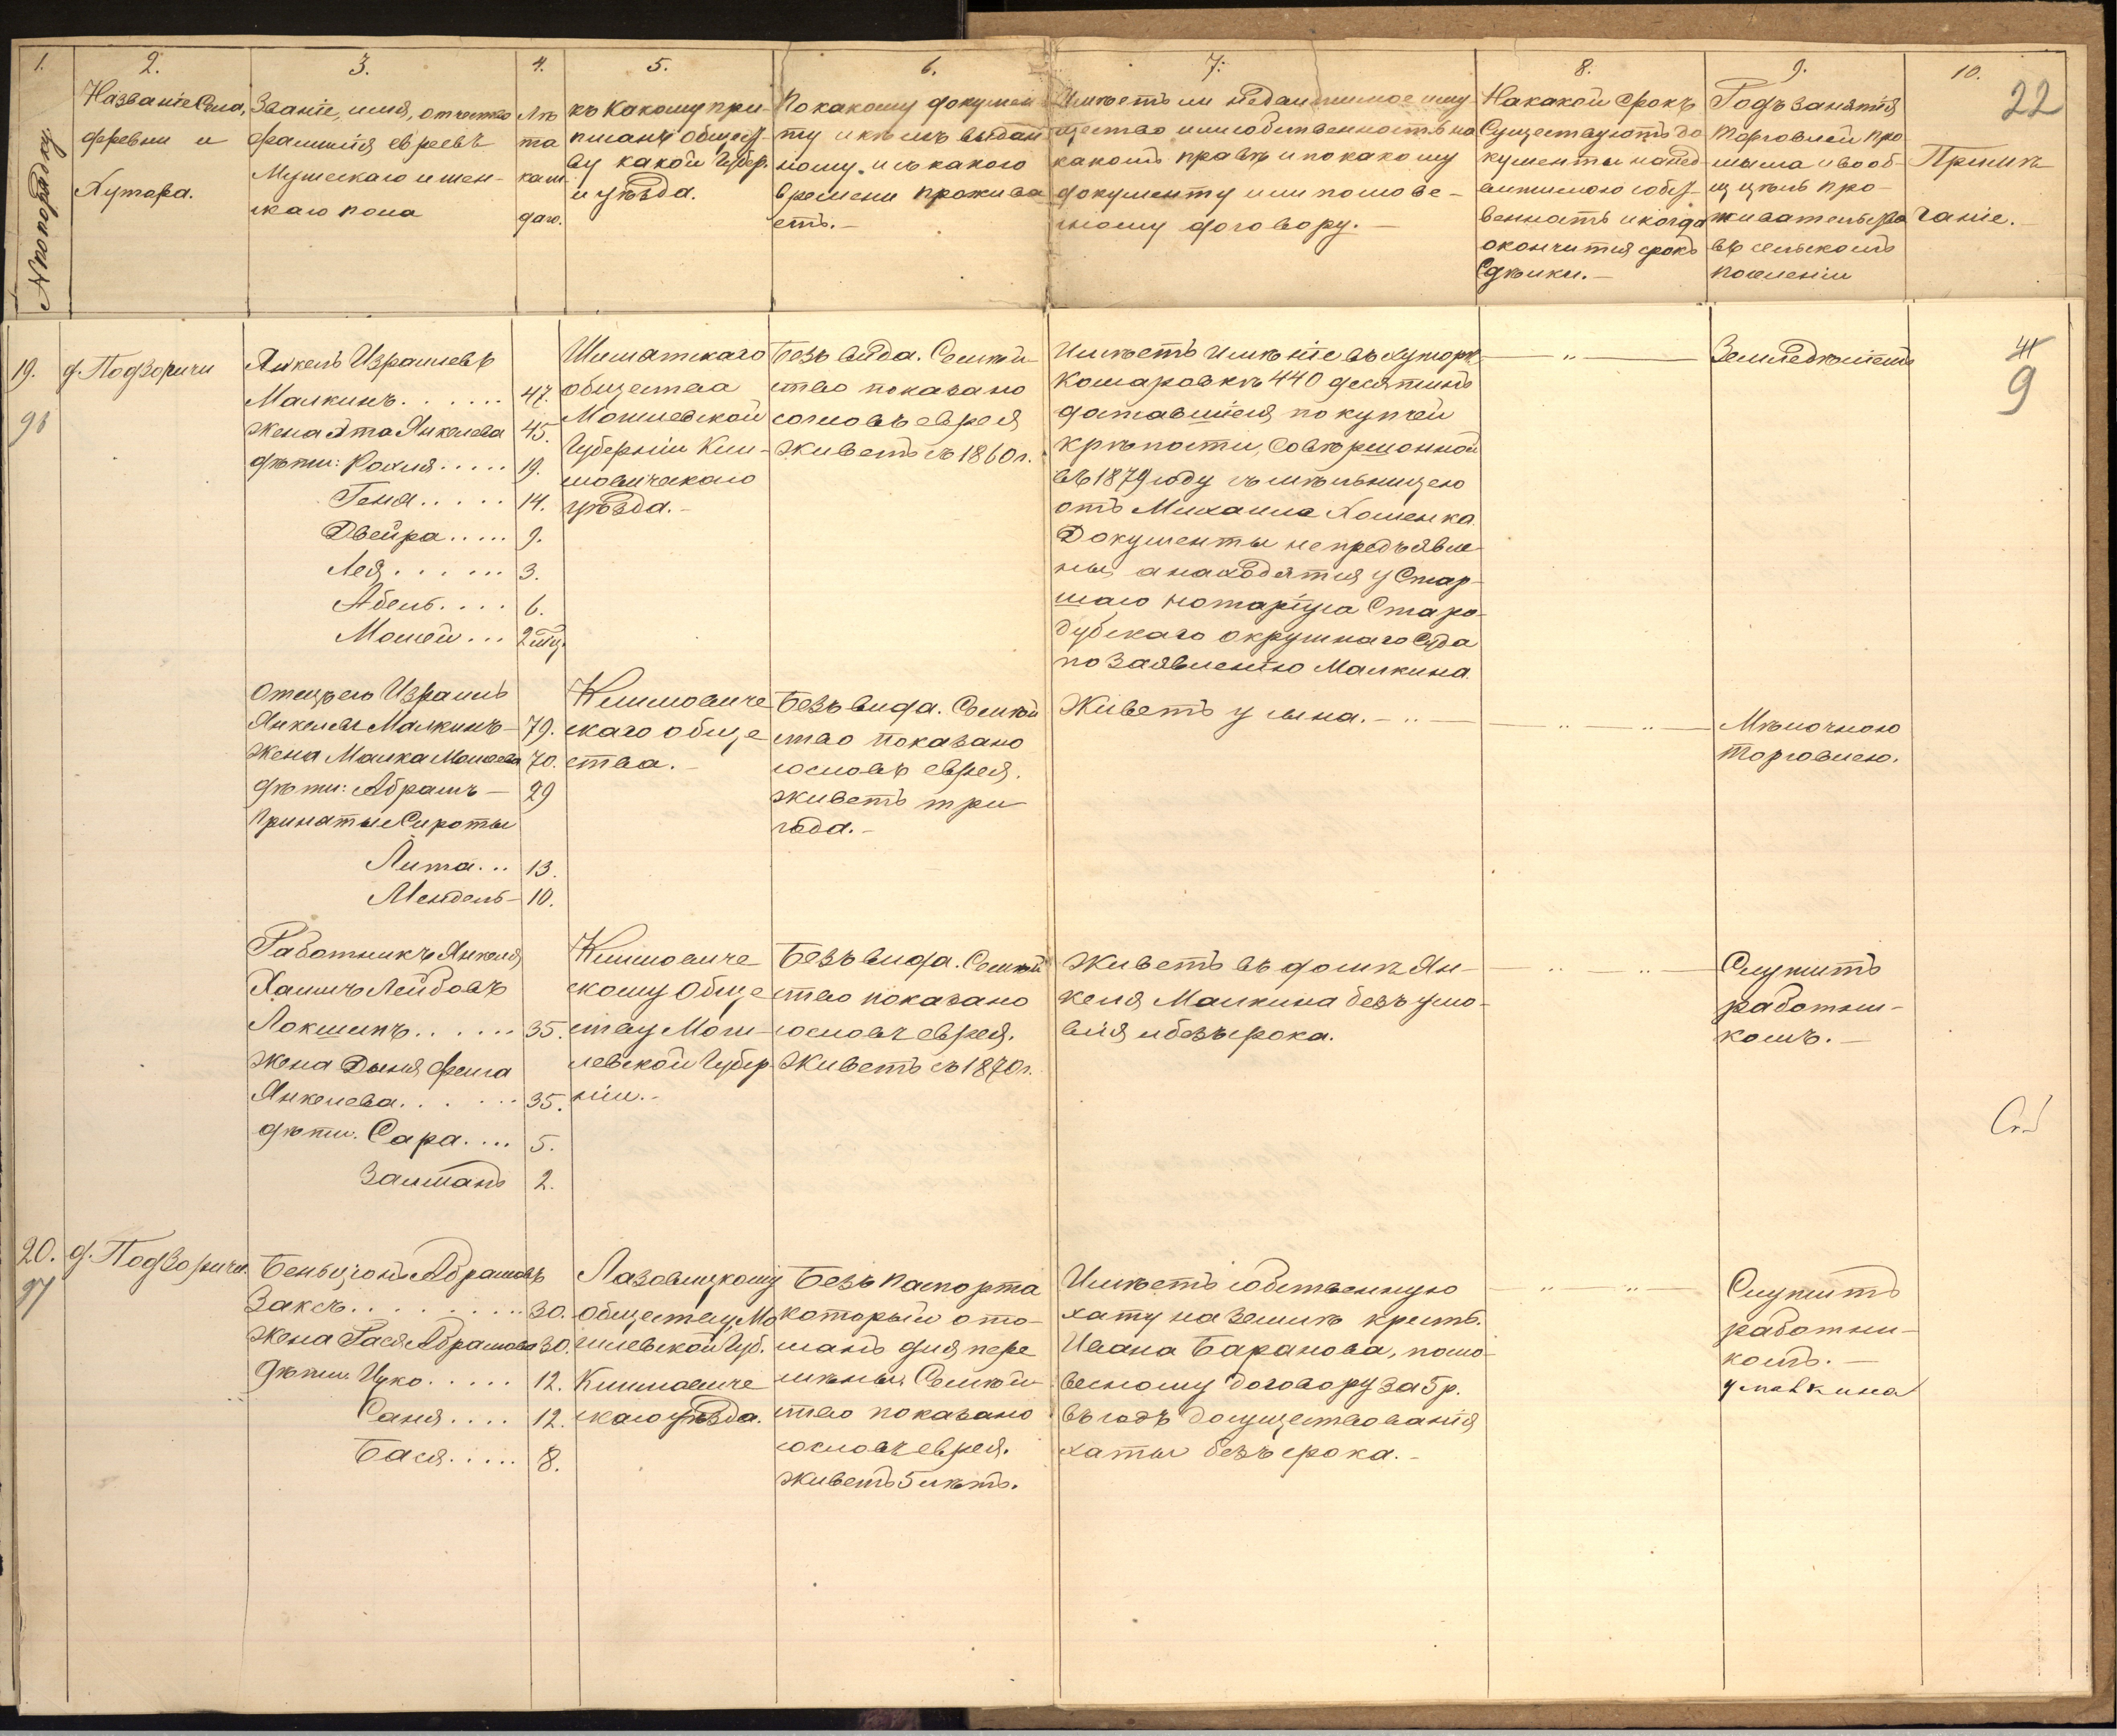 1. 2. 3. 4. 5. 6. 7. 8. 9. 10.
22
№ по порядку
Названіе Села,
деревни и
Хутора.
Званіе, имя, отчество
фамилія евреевъ
Мужескаго и жен-
скаго пола
Лѣ
та
каж-
даго.
къ Какому при-
писанъ общест-
ву какой Губер.
и уѣзда.
По какому докумен
ту и кѣмъ выдан
ному, и съ какого
времени прожива
етъ.-
Имѣетъ ли недвижимое иму
щество или собственность на
какомъ правѣ и по какому
документу или по слове-
сному договору.-
На какой срокъ
Существуютъ до
кументы на нед
вижимою собст-
венность и когда
окончится срокъ
Сдѣлки.-
Родъ занятія
торговлей про
мысла и вооб-
ще цѣль про-
живательства
въ сельскомъ
поселеніи
Примѣ
чаніе.
19. д. Подзоричи
96
Янкель Израилевъ
Малкинъ...... 47.
жена Эта Янкелева 45.
дѣти: Рохля..... 19.
Геня..... 14.
Двейра..... 9.
Лея...... 3.
Абель.... 6.
Мовшей... 2 мѣс.
Шумятскаго
общества
Могилевской
Губерніи Кли-
мовичскаго
уѣзда.-
Безъ вида. Семей-
ство показано
со словъ еврея
Живетъ съ 1860 г.
Имѣетъ имѣніе въ хуторѣ
Комаровкѣ 440 десятинъ
доставшіеся по купчей
крѣпости, совершонной
въ 1879 году съ мѣльницею
отъ Михаила Хоменка.
Документы не предъявле
ны, а находятся у Стар-
шаго нотаріуса Старо-
дубскаго окружнаго Суда
по заявленію Малкина.
Земледѣліемъ
41
9
Отецъ его Израиль
Янкелевъ Малкинъ- 79.
жена Малка Мовшева 70.
дѣти: Абрамъ- 29
Принятые Сироты
Лита... 13.
Мендель- 10.
Климовиче
скаго обще
ства.-
Безъ вида. Семей
ство показано
со словъ еврея.
живетъ три
года.-
Живетъ у сына.-
Мѣлочною
торговлею.
Работникъ Янкеля
Хаимъ Лейбовъ
Локшинъ...... 35.
жена Дыня Фейга
Янкелева...... 35.
дѣти. Сара.... 5.
Залманъ 2.
Климовиче
скому Обще
ству Моги-
левской Губер
ніи.-
Безъ вида. Семей
ство показано
со словъ еврея.
Живетъ съ 1870 г.
Живетъ въ домѣ Ян-
келя Малкина безъ усло-
вія и безъ срока.
Служитъ
работни-
комъ.-
20. д. Подзоричи.
97
Беньцонъ Абрамовъ
Заксъ........ 30.
жена Рася Абрамова 30.
дѣти. Ицко..... 12.
Саня.... 12.
Бася..... 8.
Лазовицкому
обществу Мо
гилевской Губ.
Климовиче
скаго уѣзда.
Безъ паспорта
который ото-
сланъ для пере
мѣны. Семей-
ство показано
со словъ еврея.
Живетъ 5 лѣтъ.
Имѣетъ собственную
хату на землѣ крест.
Ивана Баранова, по сло-
весному договору за 5 р.
въ годъ до существованія
хаты безъ срока.-
Служитъ
работни-
комъ.-
у Малкина